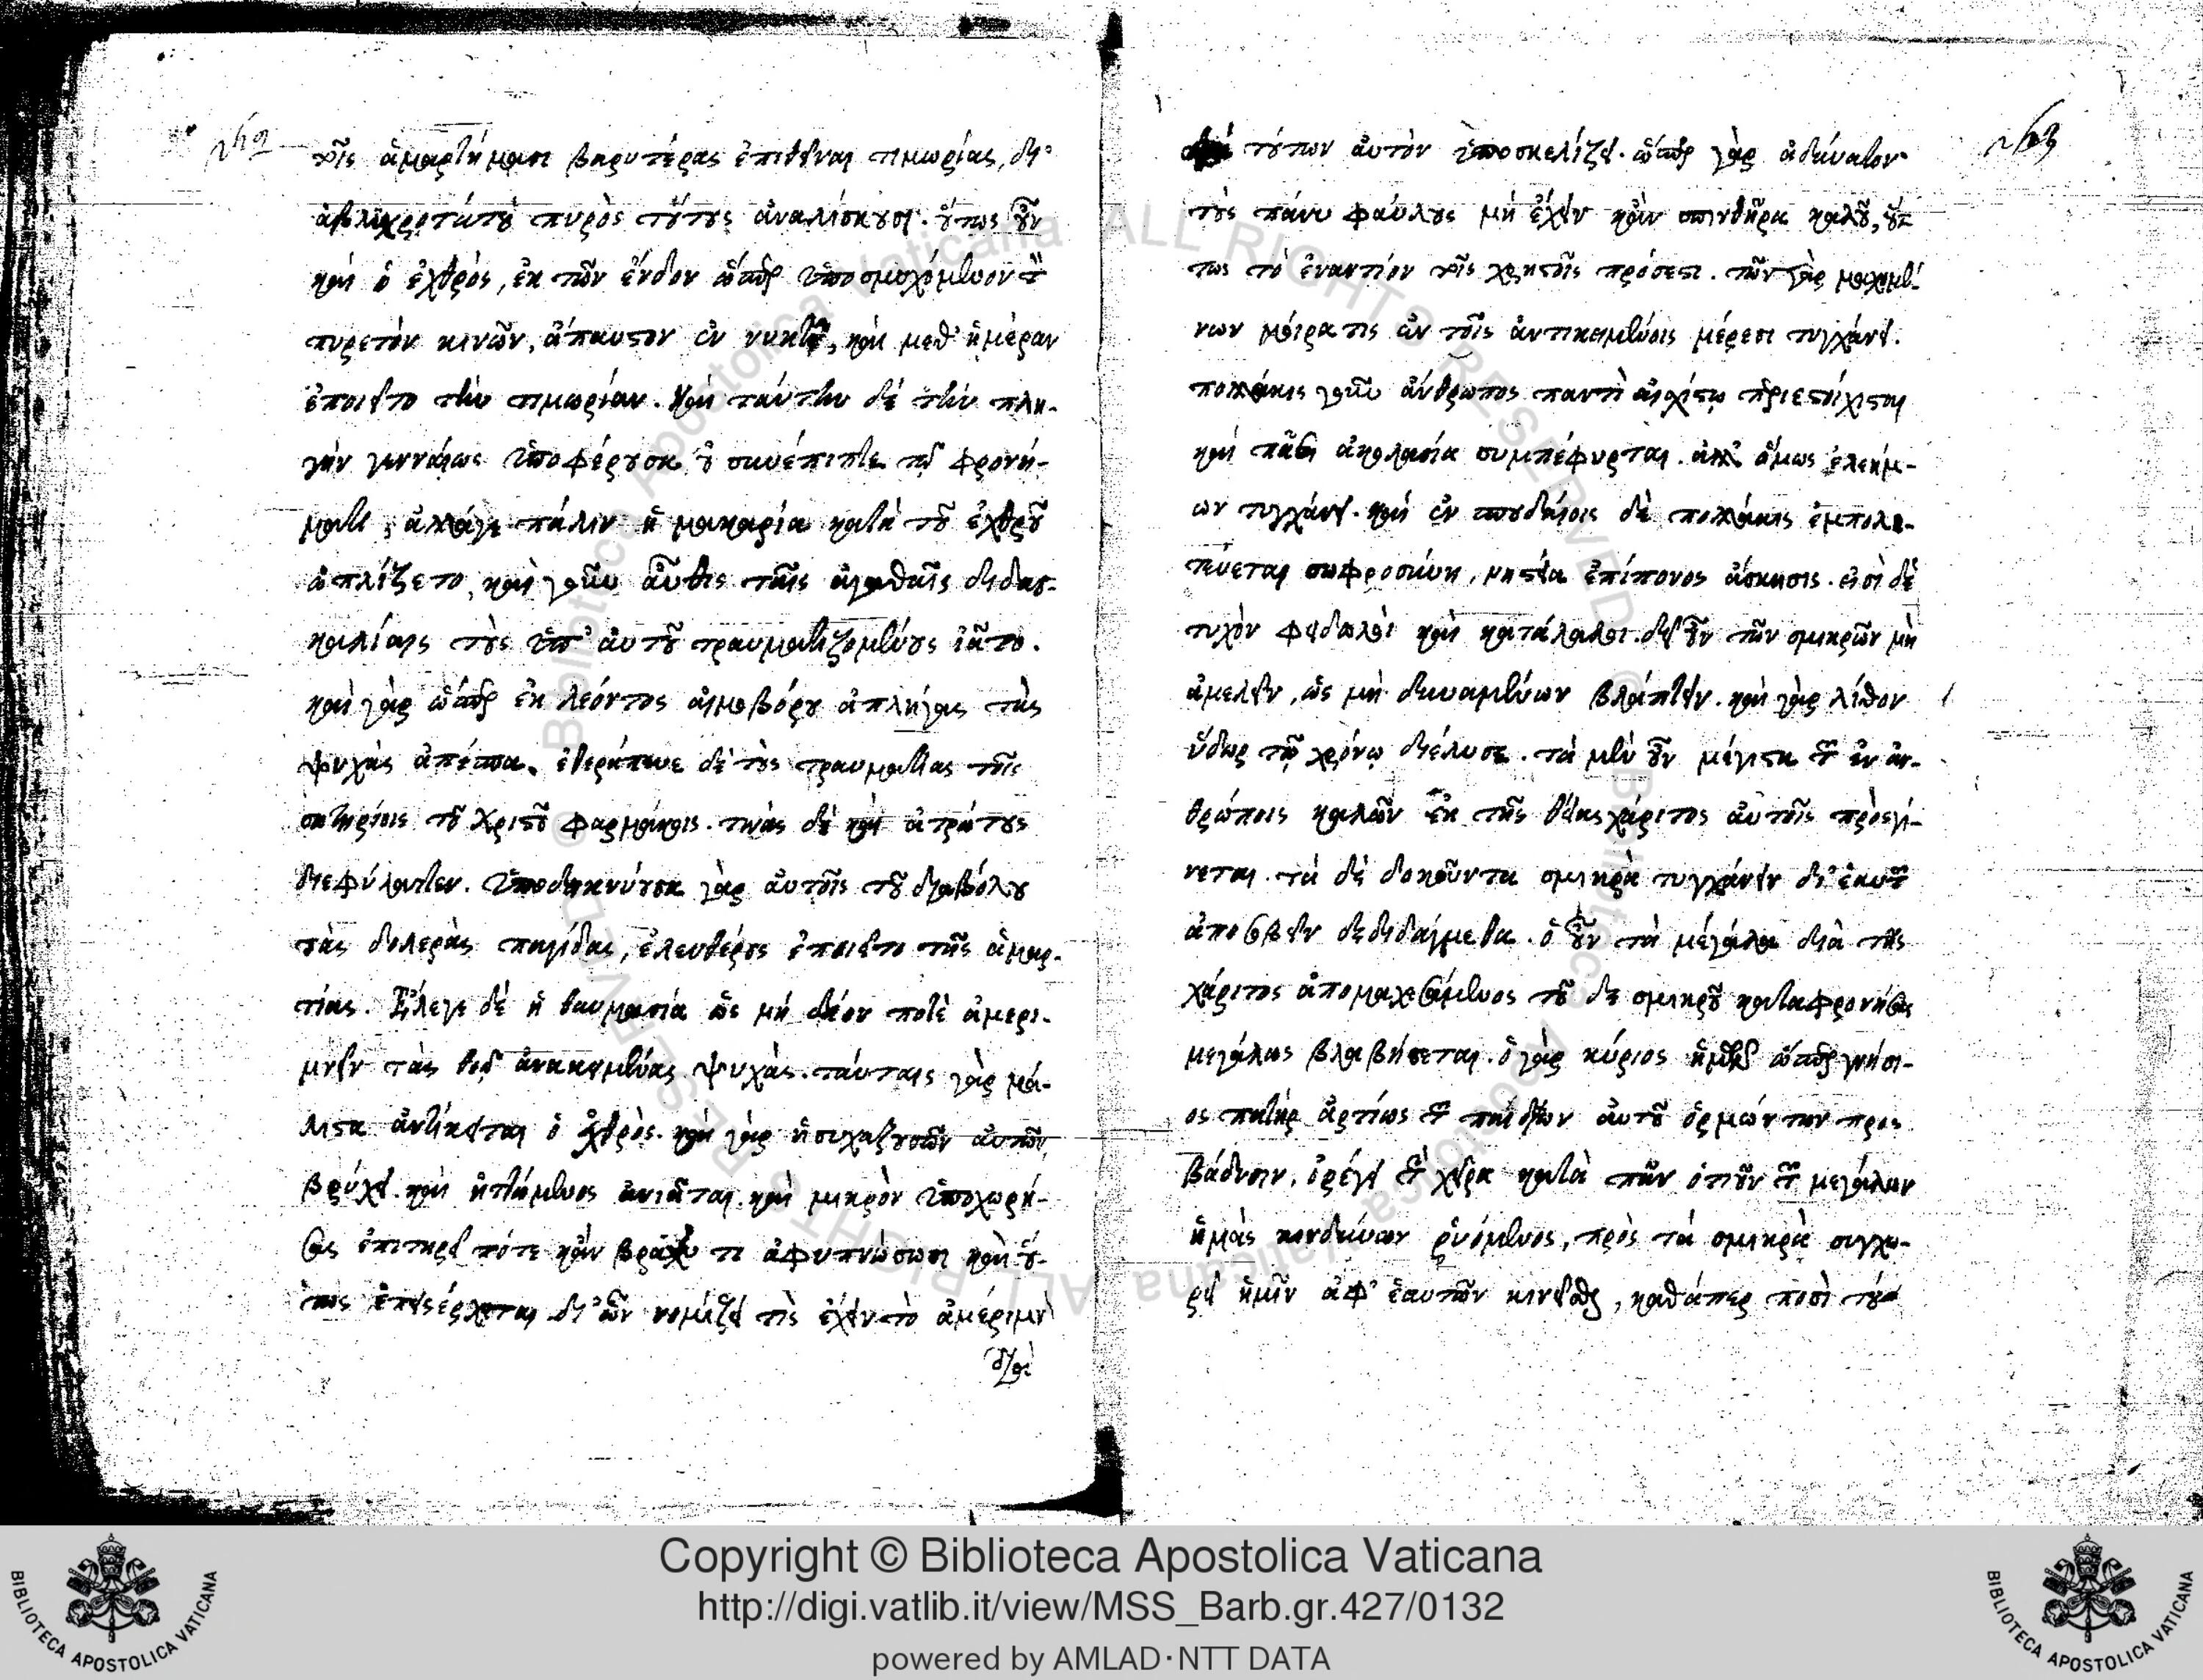 τοῖς ἁμαρτήμασι βαρυτέρας ἐπιθεῖναι τιμωρίας, δι'
ἀβληχροτάτου πυρὸς τούτους ἀναλίσκουσι. οὕτως οὖν
καὶ ὁ ἐχθρός, ἐκ τῶν ἔνδον ὥσπερ ὑποσμυχόμενον
πυρετὸν κινῶν, ἄπαυστον ἐν νυκτὶ, καὶ μεθ' ἡμέραν
ἐποιεῖτο τὴν τιμωρίαν. καὶ ταύτην δὲ τὴν πλη-
γὴν γενναίως ὑποφέρουσα οὐ συνέπιπτε τῷ φρονή-
ματι, ἀλλάγε πάλιν ἡ μακαρία κατὰ τοῦ ἐχθροῦ
ὁπλίζετο, καὶ γοῦν αὖθις ταῖς ἀγαθαῖς διδασ-
καλίαις τοὺς ὑπ' αὐτοῦ τραυματιζομένους ἰᾶτο.
καὶ γὰρ ὥσπερ ἐκ λέοντος αἱμοβόρου ἀπλήγας τὰς
ψυχὰς ἀπέσπα. ἐθεράπευε δὲ τοὺς τραυματίας τοῖς
σωτηρίοις τοῦ Χριστοῦ φαρμάκοις. τινὰς δὲ καὶ ἀτρώτους
διεφύλαττεν. ὑποδεικνύουσα γὰρ αὐτοῖς τοῦ διαβόλου
τὰς δολερὰς παγίδας, ἐλευθέρους ἐποιεῖτο τῆς ἁμαρ-
τίας. Ἔλεγε δὲ ἡ θαυμασία ὡς μὴ δέον ποτὲ ἀμερι-
μνεῖν τὰς θεῷ ἀνακειμένας ψυχάς. ταύταις γὰρ μά-
λιστα ἀντίκειται ὁ ἐχθρὸς. καὶ γὰρ ἡσυχαζουσῶν αὐτῶν
βρύχει. καὶ ἡττώμενος ἀνιᾶται. καὶ μικρὸν ὑποχωρή-
σας ἐπιτηρεῖ πότε κἂν βραχύ τι ἀφυπνώσωσι καὶ οὕ-
τως ἐπεισέρχεται δι' ὧν νομίζει τὶς ἔχειν τὸ ἀμέριμνον
διὰ
διὰ τούτων αὐτὸν ὑποσκελίζει. ὥσπερ γὰρ ἀδύνατον
τοὺς πάνυ φαύλους μὴ ἔχειν κἂν σπινθῆρα καλοῦ, οὕ-
τως τὸ ἐναντίον τοῖς χρηστοῖς πρόσεστι. τῶν γὰρ μαχομέ-
νων μοῖρα τις ἐν τοῖς ἀντικειμένοις μέρεσι τυγχάνει.
πολλάκις γοῦν ἄνθρωπος παντὶ αἰσχίστῳ περιεστοίχισται
καὶ πάσῃ ἀκολασία συμπέφυρται. ἀλλ' ὅμως ἐλεήμ-
ων τυγχάνει. καὶ ἐν σπουδαίοις δὲ πολλάκις ἐμπολι-
τεύεται σωφροσύνη, νηστεία ἐπίπονος ἄσκησις. εἰσὶ δὲ
τυχὸν φειδωλοὶ καὶ κατάλαλοι. δεῖ οὖν τῶν σμικρῶν μὴ
ἀμελεῖν, ὡς μὴ δυναμένων βλάπτειν. καὶ γὰρ λίθον
ὕδωρ τῷ χρόνῳ διέλυσε. τὰ μὲν οὖν μέγιστα τῶν ἐν ἀν-
θρώποις καλῶν ἐκ τῆς θείας χάριτος αὐτοῖς προσγί-
νεται. τὰ δὲ δοκοῦντα σμικρὰ τυγχάνειν δι' ἑαυτῶν
ἀποσοβεῖν δεδιδάγμεθα. ὁ οὖν τὰ μεγάλα διὰ τῆς
χάριτος ἀπομαχεσάμενος τοῦ δὲ σμικροῦ καταφρονήσας
μεγάλως βλαβήσεται. ὁ γὰρ κύριος ἡμῶν ὥσπερ γνήσι-
ος πατὴρ ἀρτίως τῶν παίδων αὐτοῦ ὁρμώντων προς
βάδισιν, ὀρέγει τὴν χεῖρα κατὰ πᾶν ὁτιοῦν τῶν μεγάλων
ἡμᾶς κινδύνων ῥυόμενος, πρὸς τὰ σμικρὰ συγχω-
ρεῖ ἡμῖν ἀφ' ἑαυτῶν κινεῖσθαι, καθάπερ ποσὶ